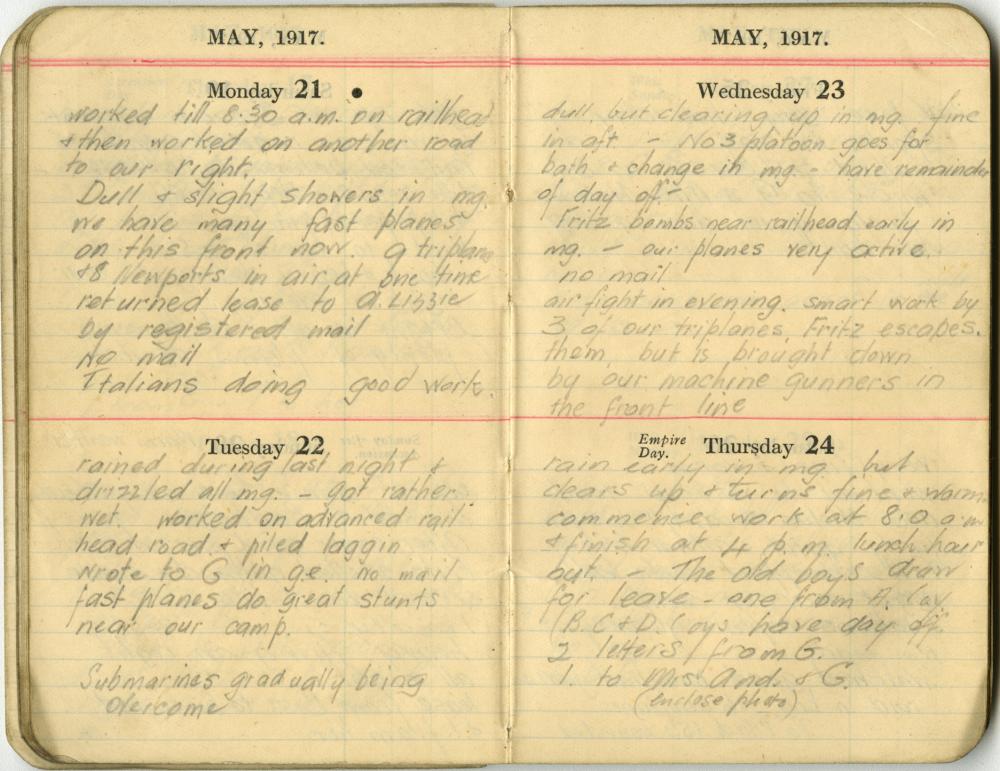 MAY, 1917.
Monday 21
worked till 8.30 a.m. on railhead
& then worked on another road
to our right.
Dull & slight showers in mg.
we have many fast planes
on this front now. 9 triplanes
& 8 Newports in air at one time
returned lease to a. Lizzie
by registered mail
no mail
Italians doing good work.
Tuesday 22
rained during last night &
drizzled all mg. - got rather
wet. worked on advanced rail
head road & piled laggin
wrote to G in g.e. no mail
fast planes do great stunts
near our camp.
Submarines gradually being
overcome
MAY, 1917.
Wednesday 23
dull but clearing up in mg. fine
in aft - No 3 platoon goes for
bath & change in mg - have remainder
of day off -
Fritz bombs near railhead early in
mg. - our planes very active.
no mail
air fight in evening. smart work by
3 of our triplanes, Fritz escapes.
them, but is brought down
by our machine gunners in
the front line
Empire
Day.
Thursday 24
rain early in mg. but
clears up & turns fine & warm
commence work at 8.0 a.m
& finish at 4 p.m. lunch hour
out. - The old boys draw
for leave - one from A. Coy
(B. C & D. Coys have day off.
2 letters from G.
1. to Mrs And. & G.
(enclose photo)